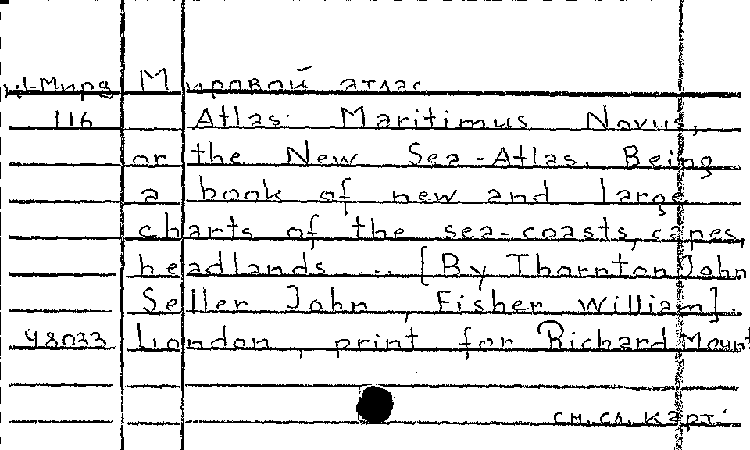 ц1-Мира Мировой атлас
116 Atlas Maritimus Novus,
or the New Sea-Atlas. Being
a book of new and large
charts of the sea-coasts, capes,
headlands ... [By Thornton John
Seller John, Fisher William].
48033 London, print for Richard Mount
см. сл. карт.